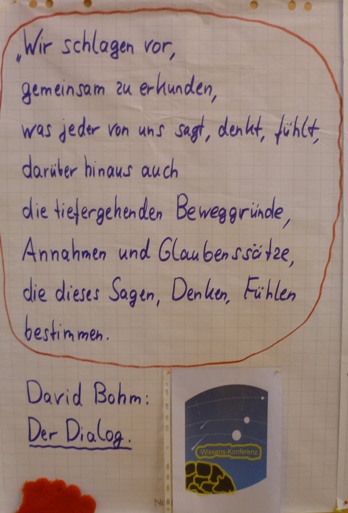 „Wir schlagen vor,
gemeinsam zu erkunden,
was jeder von uns sagt, denkt, fühlt,
darüber hinaus auch
die tiefergehenden Beweggründe,
Annahmen und Glaubenssätze,
die dieses Sagen, Denken, Fühlen
bestimmen.
David Bohm:
Der Dialog.
Wissens-Konferenz